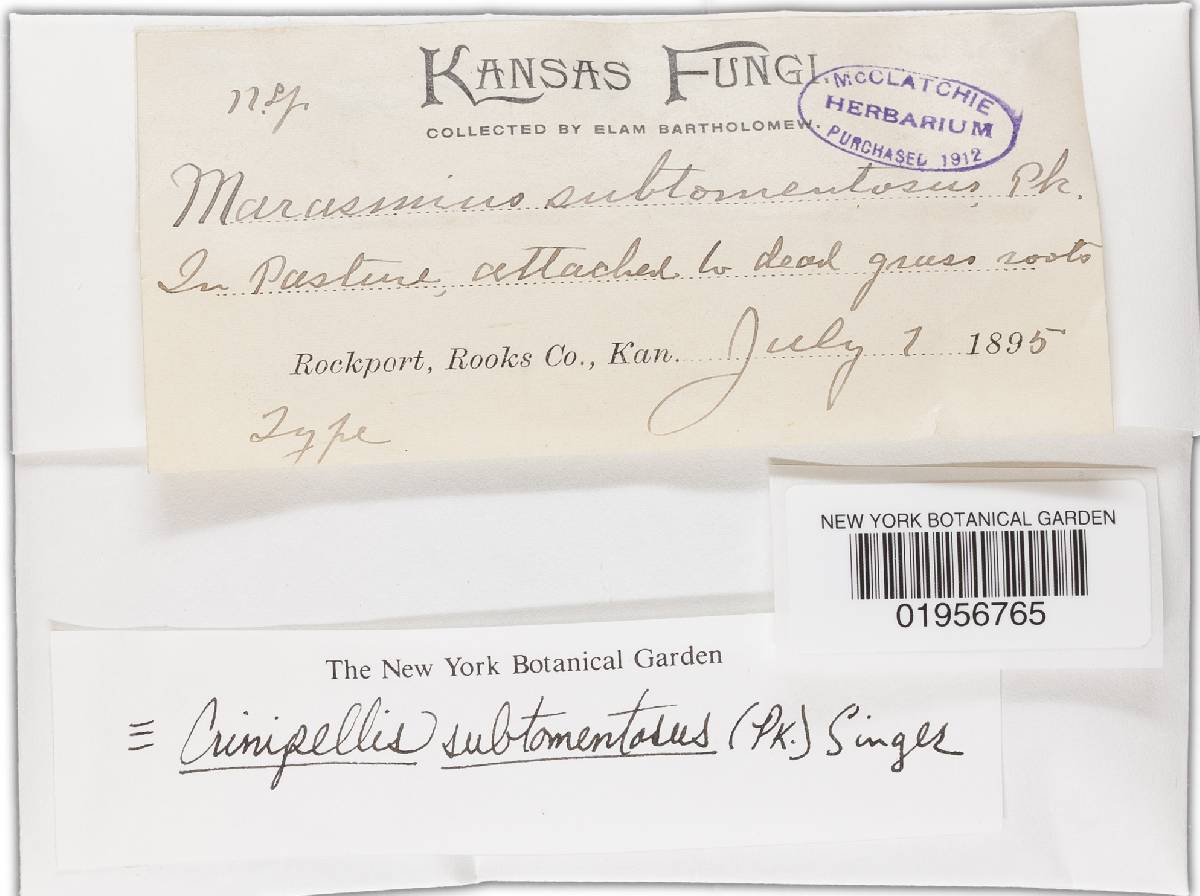 KANSAS FUNGI.
n.sp.
McCLATCHIE
HERBARIUM
PURCHASED 1912
COLLECTED BY ELAM BARTHOLOMEW.
Marasmius subtomentosus, Pk.
In Pasture, attached to dead grass roots
Rockport, Rooks Co., Kan. July 1 1895
Type
NEW YORK BOTANICAL GARDEN
01956765
The New York Botanical Garden
≡ Crinipellis subtomentosus (Pk.) Singer